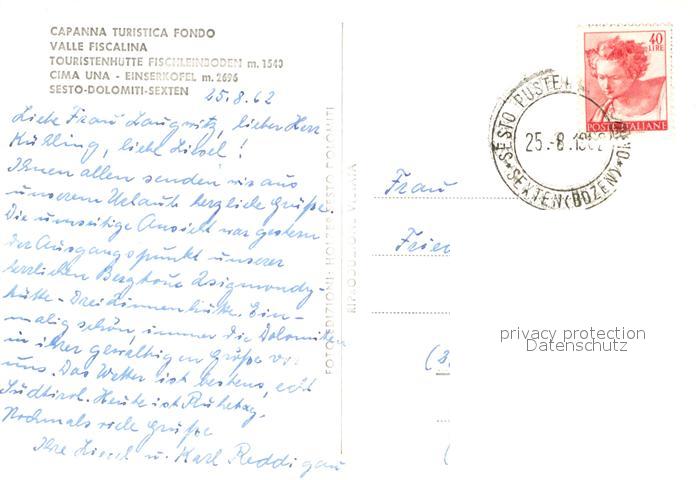 CAPANNA TURISTICA FONDO
VALLE FISCALINA
TOURISTENHÜTTE FISCHLEINBODEN m. 1540
CIMA UNA - EINSERKOFEL m. 2696
SESTO-DOLOMITI-SEXTEN
25.8.62
Liebe Frau Laugwitz, lieber Herr
Kühling, liebe Liesel!
Ihnen allen senden wir aus
unserem Urlaub herzliche Grüße.
Die umseitige Ansicht war gestern
der Ausgangspunkt unserer
herrlichen Bergtour Zsigmondy-
hütte - Dreizinnenhütte. Ein-
malig schön, immer die Dolomiten
in ihrer gewaltigen Größe vor
uns. Das Wetter ist bestens, echt
Südtirol. Heute ist Ruhetag.
Nochmals viele Grüße
Ihre Liesel u. Karl Reddigau
FOTOEDIZIONI: HOLZER SESTO DOLOMITI
RIPRODUZIONE VIETATA
Frau
Frie
40
LIRE
POSTE ITALIANE
SESTO PUSTE
25.-8.1962
SEXTEN (BOZEN)
privacy protection
Datenschutz